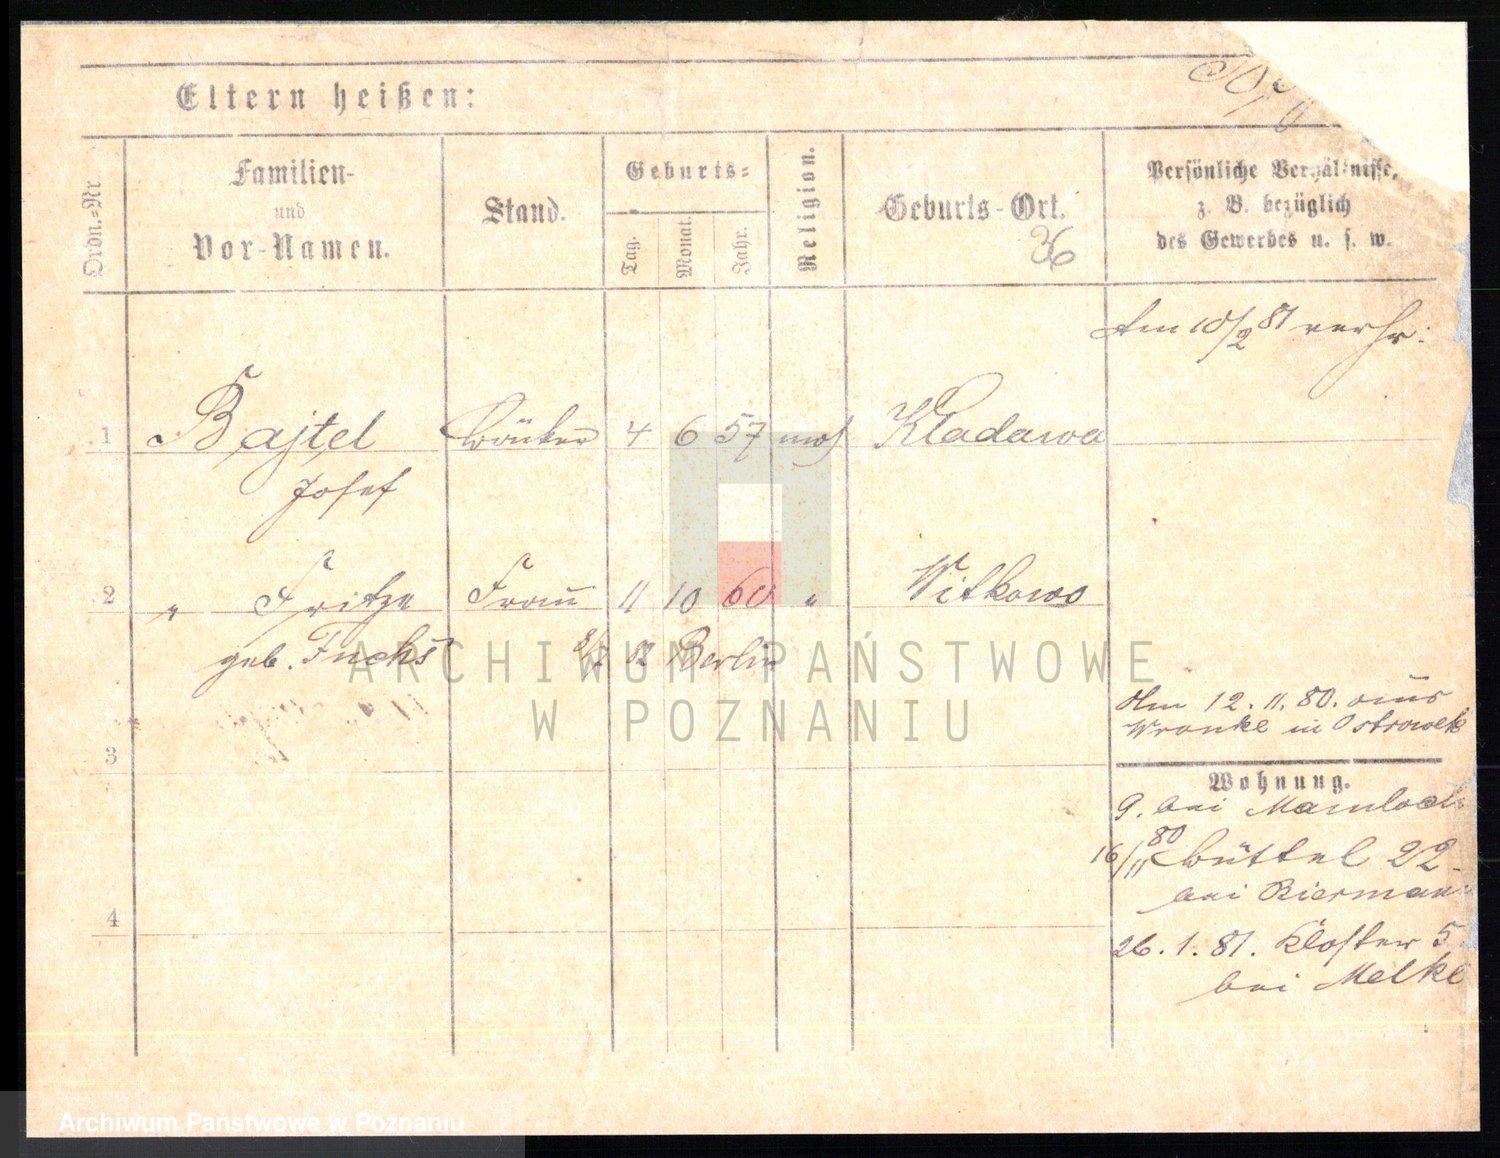 Eltern heißen:
Ordn.=Nr
Familien-
und
Vor-Namen.
Stand.
Geburts=
Tag.
Monat.
Jahr.
Religion.
Geburts-Ort.
36
Persönliche Verhältnisse,
z. B. bezüglich
des Gewerbes u. s. w.
Am 10/2 81 verhr:
1 Bajtel 4 6 57 mos Kladawa
Josef
2 " Fritze Frau 11 10 60 " Witkowo
geb. Fuchs 82 Berlin
Am 12. 11. 80. aus
Wronke in Ostrowek
3
Wohnung.
9. bei Mamloch
16/11 80 Büttel 22
bei Bierman
4
26. 1. 81. Kloster 5
bei Melke
ARCHIWUM PAŃSTWOWE
W POZNANIU
Archiwum Państwowe w Poznaniu